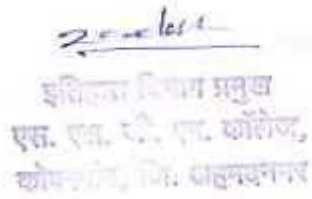 इतिहास विभाग प्रमुख
एस. एस. जी. एम. कॉलेज,
कोपरगांव, जि. अहमदनगर